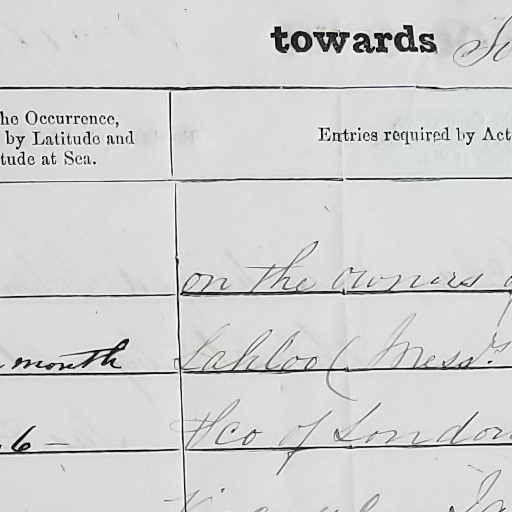 towards
he Occurrence,
by Latitude and
tude at Sea.
Entries required by Act
on the owners
month Lahloo ( Messrs
6 — & Co of London